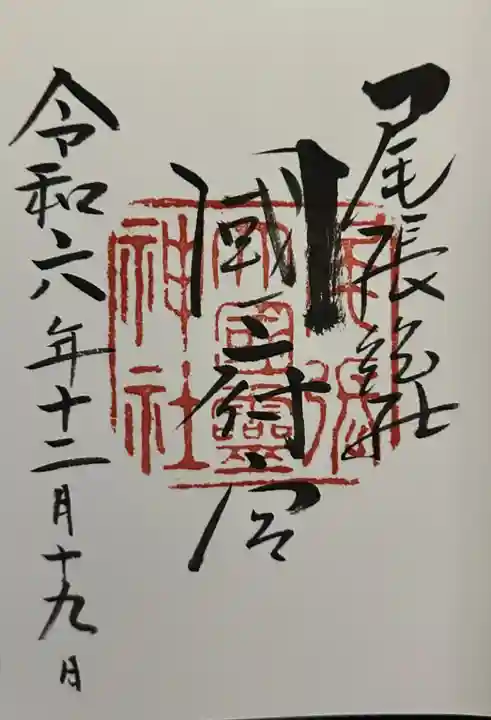 尾張総社
國府宮
尾張大国霊神社
令和六年十二月十九日